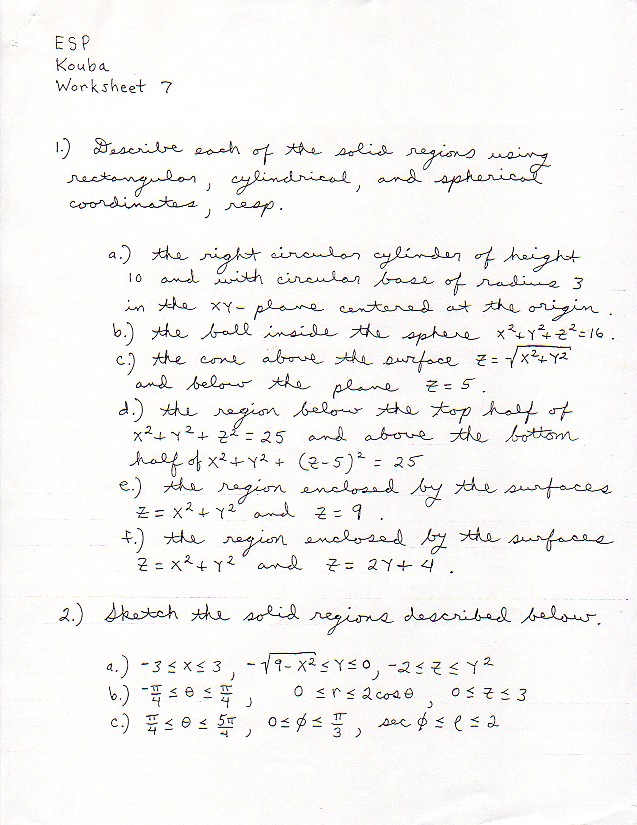 ESP
Kouba
Worksheet 7
1.) Describe each of the solid regions using
rectangular, cylindrical, and spherical
coordinates, resp.
a.) the right circular cylinder of height
10 and with circular base of radius 3
in the XY-plane centered at the origin.
b.) the ball inside the sphere x²+Y²+Z²=16.
c.) the cone above the surface Z=√x²+Y²
and below the plane Z=5.
d.) the region below the top half of
x²+Y²+Z²=25 and above the bottom
half of x²+Y²+(Z-5)²=25
e.) the region enclosed by the surfaces
Z=x²+Y² and Z=9.
f.) the region enclosed by the surfaces
Z=x²+Y² and Z=2Y+4.
2.) Sketch the solid regions described below.
a.) -3≤x≤3, -√9-x²≤Y≤0, -2≤Z≤Y²
b.) -π/4≤θ≤π/4, 0≤r≤2cosθ, 0≤Z≤3
c.) π/4≤θ≤5π/4, 0≤φ≤π/3, sec φ≤ρ≤2